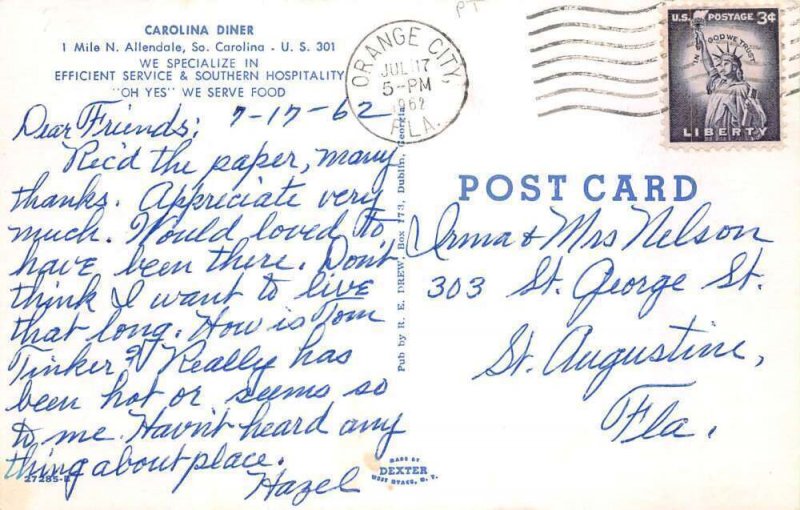 CAROLINA DINER
1 Mile N. Allendale, So. Carolina - U. S. 301
WE SPECIALIZE IN
EFFICIENT SERVICE & SOUTHERN HOSPITALITY
"OH YES" WE SERVE FOOD
7-17-62
Dear Friends:
Rec'd the paper, many
thanks. Appreciate very
much. Would loved to
have been there. Don't
think I want to live
that long. How is Tom
Tinker? Really has
been hot or seems so
to me. Havn't heard any
thing about place.
Hazel
27285-B
Pub by R. E. DREW, Box 173, Dublin, Georgia
MADE BY
DEXTER
WEST NYACK, N. Y.
PT
ORANGE CITY,
JUL 17
5-PM
1962
FLA.
U.S. POSTAGE 3¢
IN GOD WE TRUST
LIBERTY
POST CARD
Irma & Mrs Nelson
303 St. George St.
St. Augustine,
Fla.